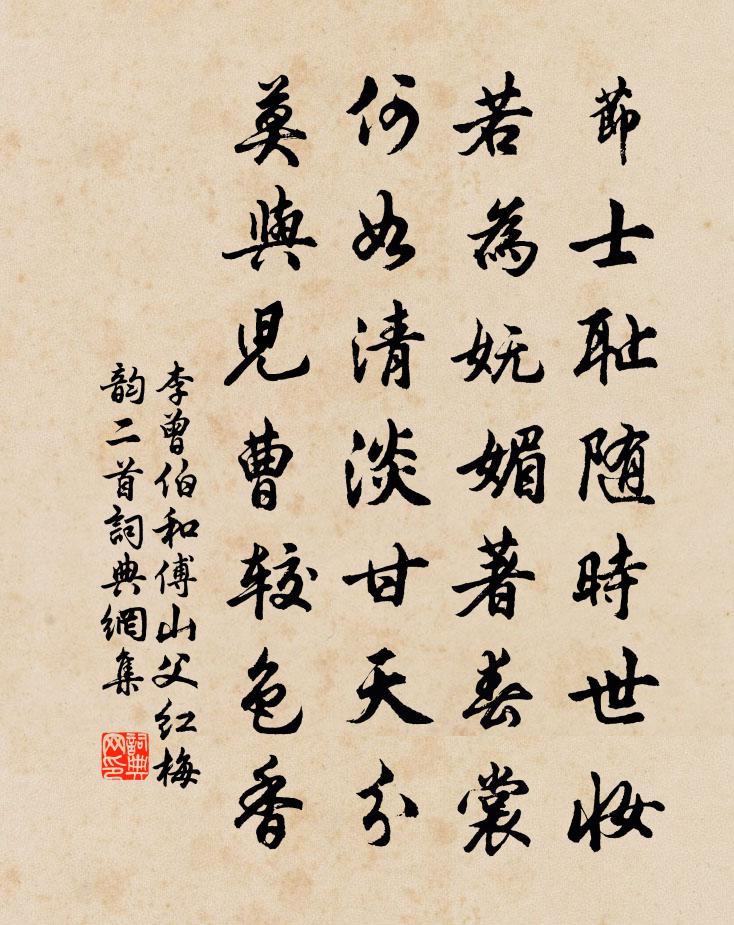 節士耻随時世妆
若為妩媚著春裳
何如清淡甘天分
莫與兒曹较色香
李曾伯和傅山父红梅
韵二首詞典網集
詞典网印